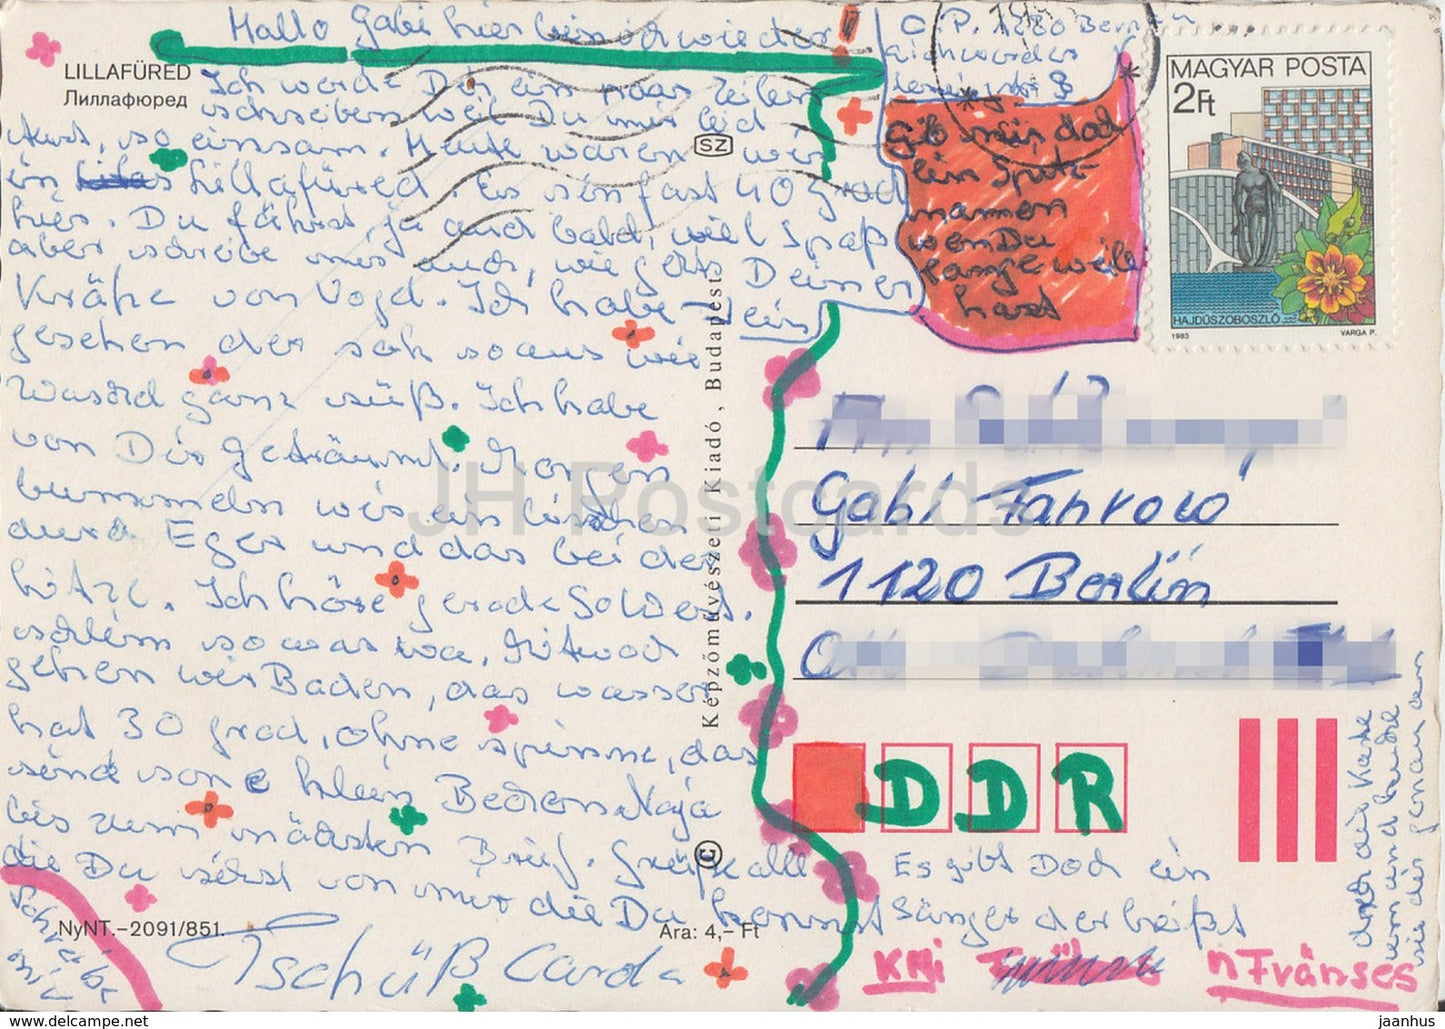 Hallo Gabi hier bin ich wieder!
LILLAFÜRED
Лиллафюред
Ich werde Dir ein paar Zeilen
schreiben weil Du mir leid
tust, so einsam. Heute waren wir
in Lillafüred. Es sin fast 40 grad
hier. Du fährst ja auch bald, viel Spaß
aber schreibe mir auch, wie gehts Deiner
Krähe von Vogel. Ich habe ein
gesehen der sah so aus wie
ganz süß. Ich habe
von Dir geträumt. Morgen
bummeln wir ein bischen
durch Eger und das bei der
hitze. Ich höre gerade
schlim so was wa, Mitwoch
gehen wir Baden, das wasser
hat 30 grad, ohne spinne, das
sind so ne klein Becken. Naja
bis zum nächsten Brief. Grüße alle
die Du siehst von mir die Du kennst
Schreibe
mir
NyNT.-2091/851.
Ára: 4,- Ft
Tschüß Carda
SZ
Képzőművészeti Kiadó, Budapest
©
O. P. 1280
gib mir doch
ein Spitz
namen
wen Du
lange weile
hast
MAGYAR POSTA
2Ft
HAJDÚSZOBOSZLÓ
1983
VARGA P.
Gabi
1120 Berlin
DDR
Es gibt Doch ein
Sänger der heißt
dreh die Karte
um und
sie dir genau an
JH Postcards
www.delcampe.net
jaanhus